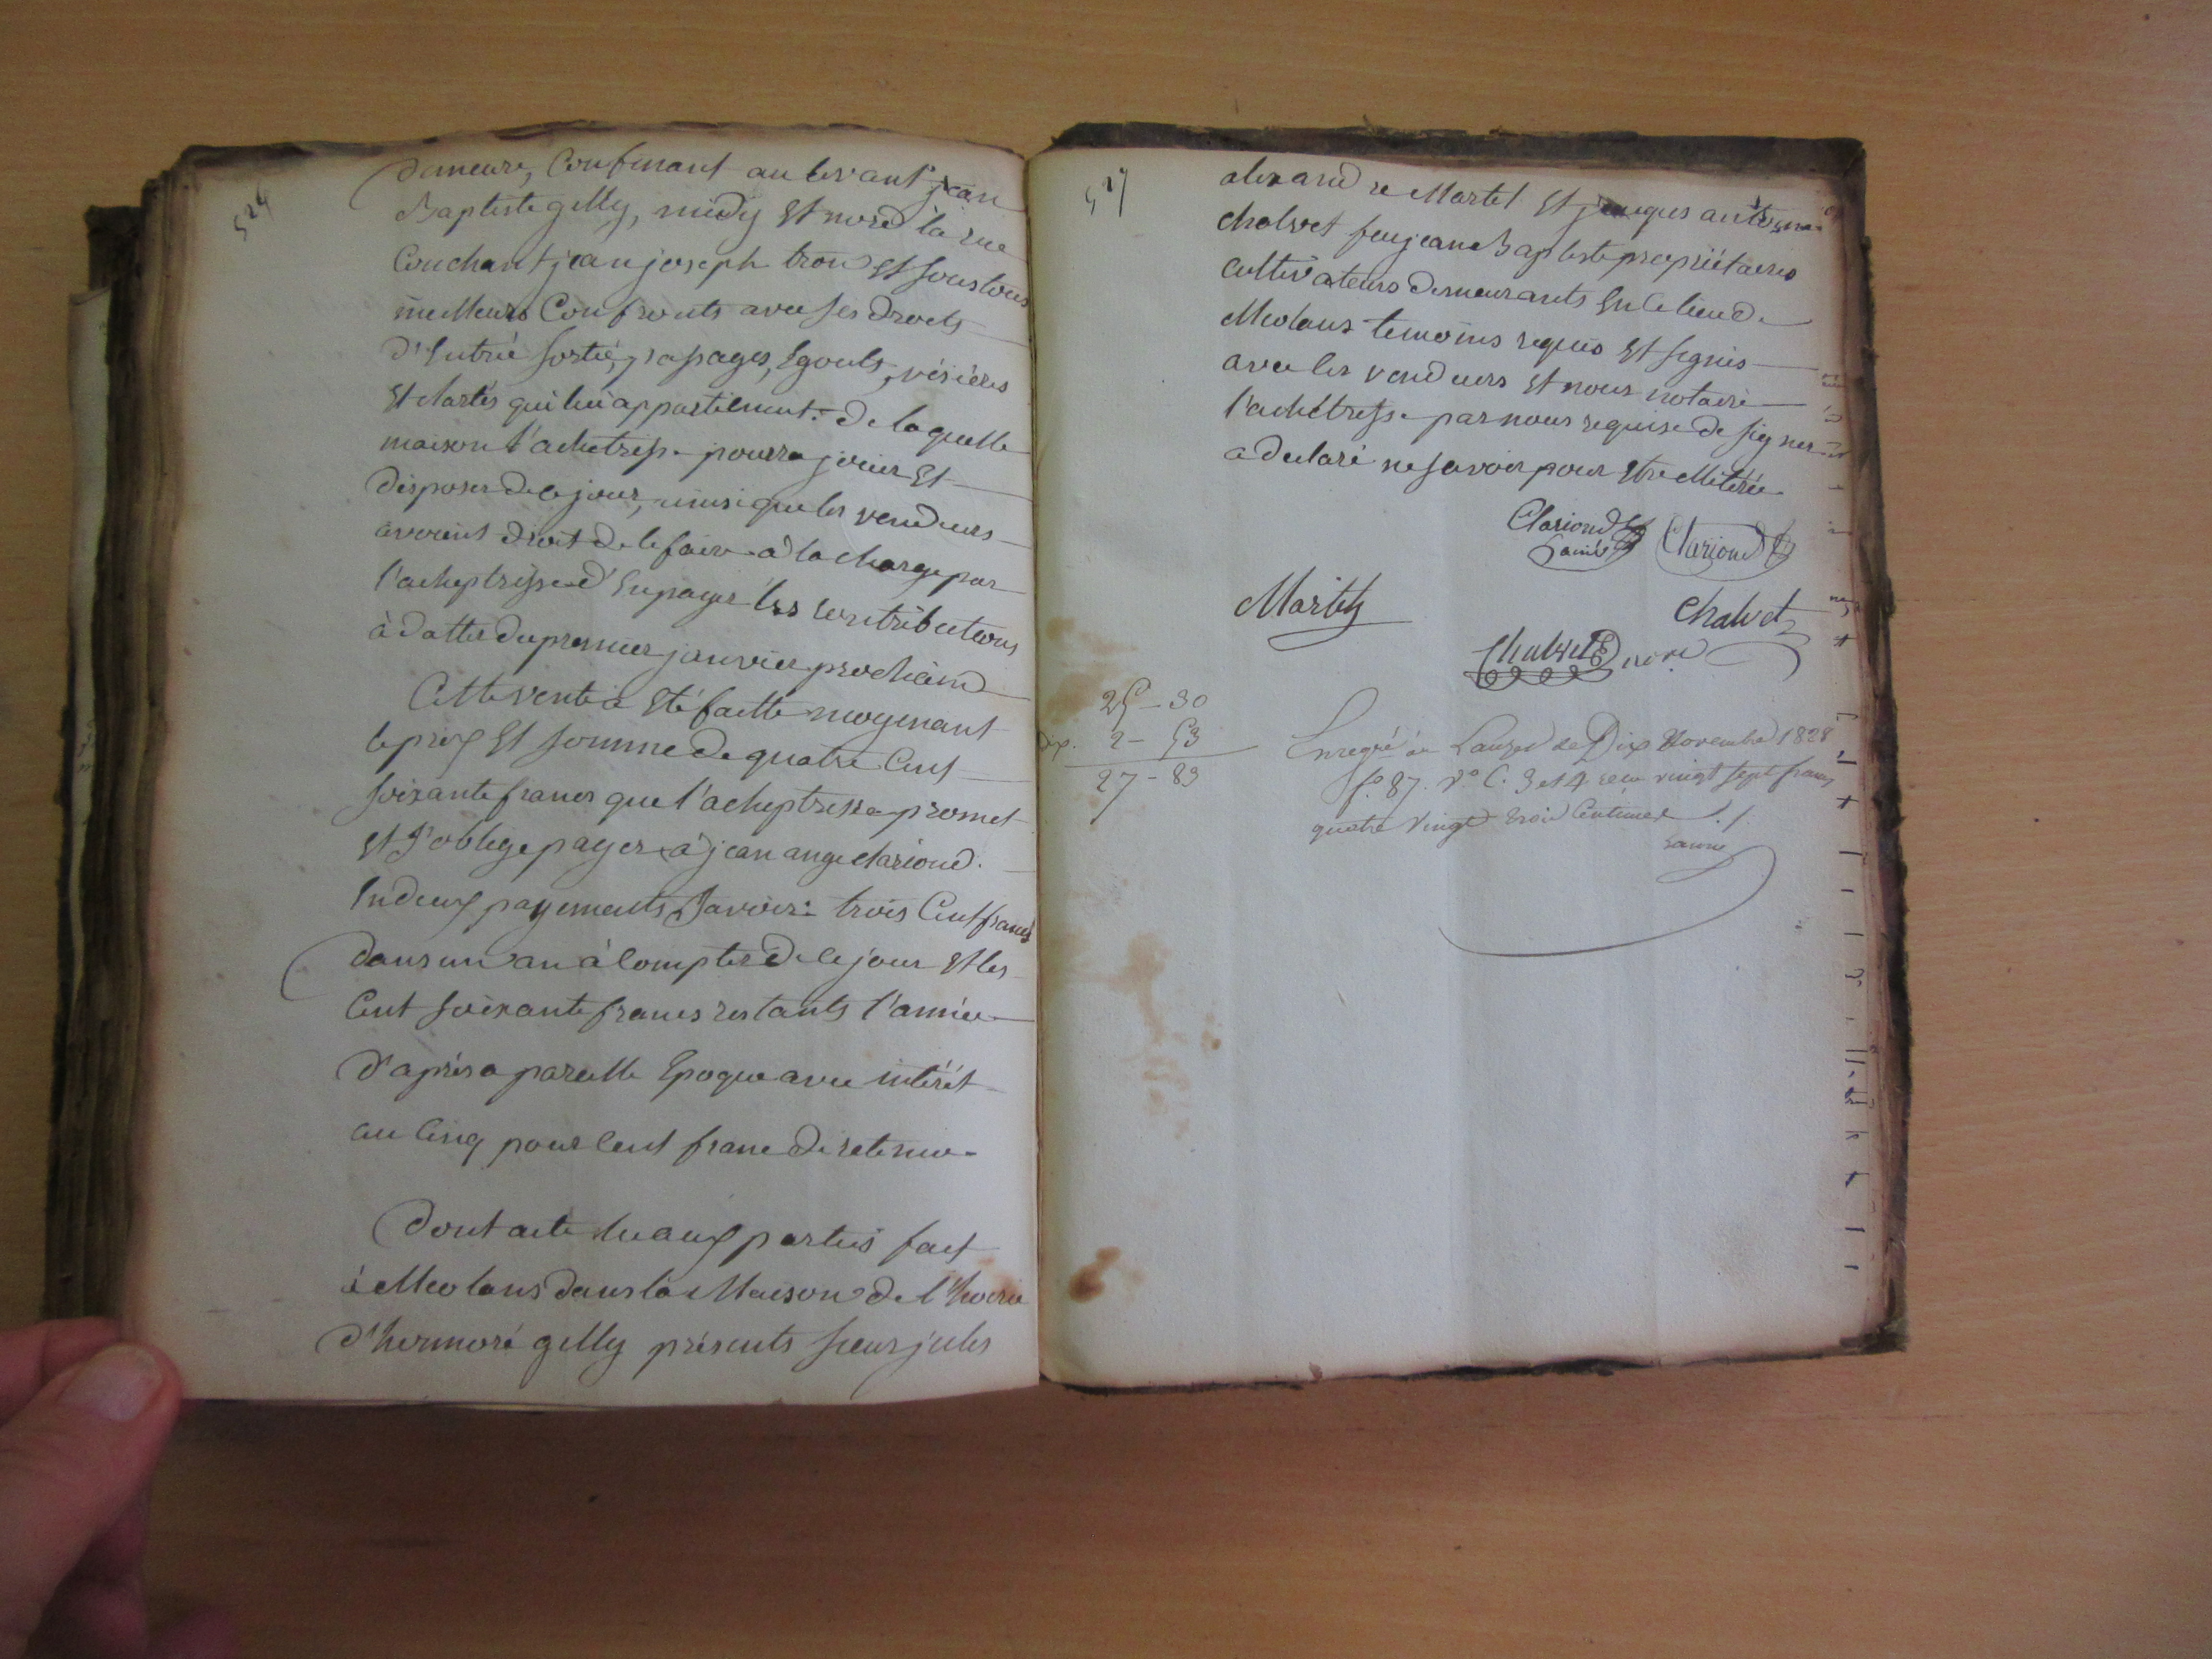 524
demeure, Confinant au levant jean
Baptiste gilly, midy Et nord la rue
Couchant jean joseph tron Et sous tous
meilleurs Confronts avec ses droits
d'Entrée sortie, passages, Egouts, vésières
Et clartés qui lui appartienent: de laquelle
maison l'achetresse pourra jouir Et
disposer de ce jour, ainsi que les vendeurs
avoient droit de le faire à la charge par
l'acheptresse d'En payer les contributions
à datter du premier janvier prochain
Cette vente a Eté faitte moyenant
le prix Et somme de quatre Cent
soixante francs que l'acheptresse promet
Et s'oblige payer à jean ange clariond.
En deux payements Savoir: trois Cent francs
dans un an à compter de ce jour Et les
Cent soixante francs restants l'année
d'après a pareille Epoque avec intérêt
au Cinq pour Cent franc de retenue.
Dont acte lu aux parties fait
à Meolans dans la Maison de l'hoirie
d'honnoré gilly présents sieur jules
527
alexandre Martel Et jacques antoine
chalvet feu jean Baptiste propriétaires
cultivateurs demeurants En ce lieu de
Meolans temoins requis Et signés
avec les vendeurs Et nous notaire
l'achetresse par nous requise de signer
a declaré ne savoir pour Etre illitérée
Clariond Clariond
l'ainé
Martel
Chalvet
Chalvet nore
25 - 30
dix. 2 - 53
27 - 83
Enregtré au Lauzet le Dix Novembre 1828
fo. 87. Vo C. 3 et 4 reçu vingt sept francs
quatre Vingt trois Centimes ./.